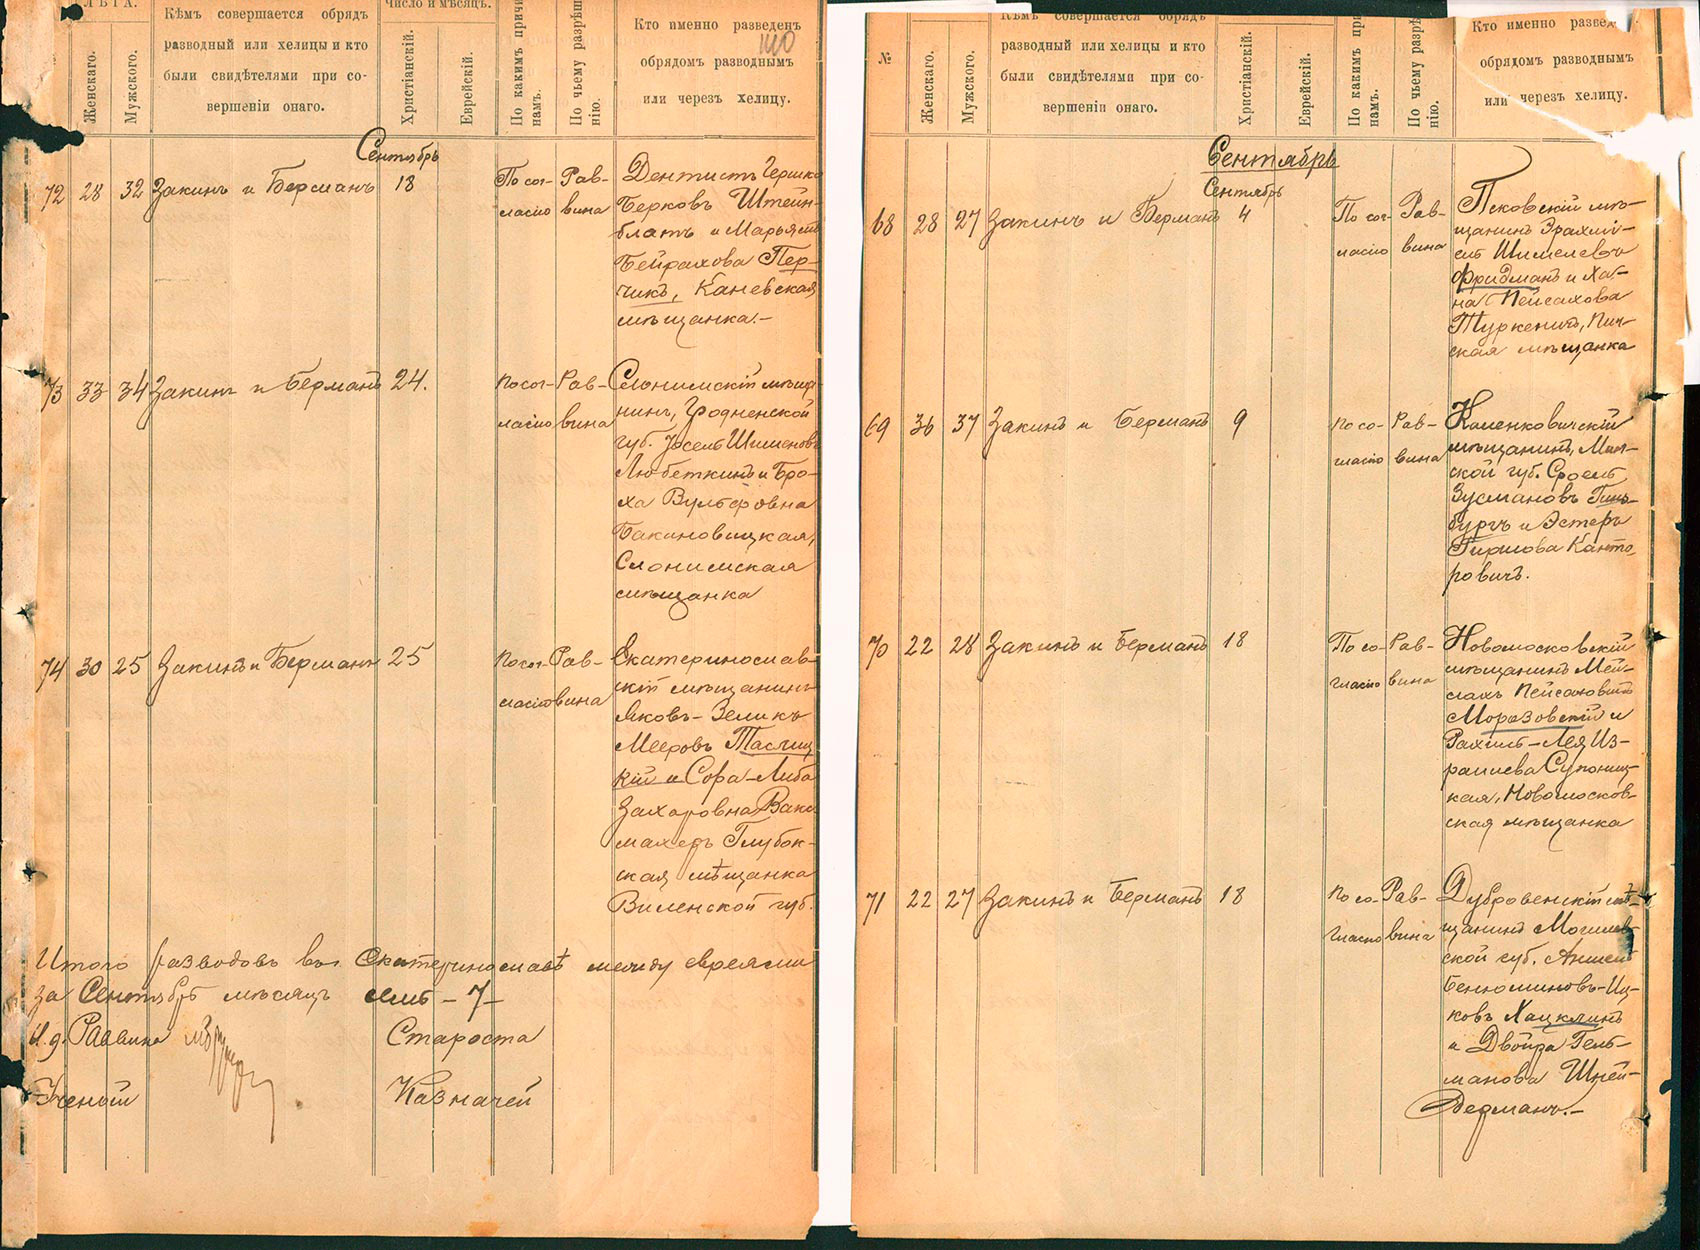 ЛѢТА.
Женскаго.
Мужского.
Кѣмъ совершается обрядъ
разводный или хелицы и кто
были свидѣтелями при со-
вершеніи онаго.
Число и мѣсяцъ.
Христіанскій.
Еврейскій.
По какимъ причи
намъ.
По чьему разрѣш
нію.
Кто именно разведенъ
обрядомъ разводнымъ
или черезъ хелицу.
Сентябрь
72 28 32 Закинъ и Берманъ 18
По сог-
ласію
Рав-
вина
Дентистъ Гершко
Берковъ Штейн-
блатъ и Марьясъ
Бейрахова Пер-
чикъ, Каневская
мѣщанка.-
73 33 34 Закинъ и Берманъ 24.
По сог-
ласію
Рав-
вина
Слонимскій мѣща-
нинъ, Гродненской
губ. Іосель Шименовъ
Любеткинъ и Бро-
ха Вульфовна
Бакиновицкая,
Слонимская
мѣщанка
74 30 25 Закинъ и Берманъ 25
По сог-
ласію
Рав-
вина
Екатеринослав-
скій мѣщанинъ
Яковъ-Зеликъ
Мееровъ Таслиц
кій и Сора-Либа
Захаровна Вако
махеръ Глубок-
ская мѣщанка
Виленской губ.
Итого разводовъ въ г. Екатеринославѣ между евреями
за Сентябрь мѣсяцъ семь - 7 -
И. д. Раввина
Староста
Ученый
Казначей
№
Женскаго.
Мужского.
Кѣмъ совершается обрядъ
разводный или хелицы и кто
были свидѣтелями при со-
вершеніи онаго.
Христіанскій.
Еврейскій.
По какимъ при
намъ.
По чьему разрѣ
нію.
Кто именно развед
обрядомъ разводнымъ
или черезъ хелицу.
Сентябрь
Сентябрь
68 28 27 Закинъ и Берманъ 4
По сог-
ласію
Рав-
вина
Псковскій мѣ-
щанинъ Эрахміэль
Шмелевъ
Фридманъ и Ха-
на Пейсахова
Туркеничъ, Пин-
ская мѣщанка
69 36 37 Закинъ и Берманъ 9
По со-
гласію
Рав-
вина
Каменковичскій
мѣщанинъ, Мин-
ской губ. Сроель
Зусмановъ Гинз-
бургъ и Эстеръ
Гиршова Канто-
ровичъ.
70 22 28 Закинъ и Берманъ 18
По со-
гласію
Рав-
вина
Новомосковскій
мѣщанинъ Мей-
лахъ Пейсаховичъ
Морозовскій и
Рахиль-Лея Из-
раилева Супониц-
кая, Новомосков-
ская мѣщанка
71 22 27 Закинъ и Берманъ 18
По со-
гласію
Рав-
вина
Дубровенскій мѣ-
щанинъ Могилев-
ской губ. Аншель
Бенюминовъ-Иц-
ковъ Хацклинъ
и Двойра Гель-
манова Шней-
дерманъ.-